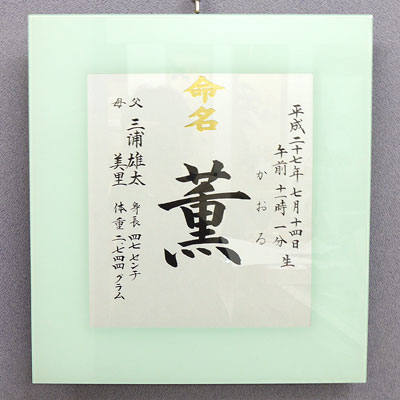 命名
平成二十七年七月十四日
午前十一時一分生
かおる
薫
父 三浦雄太
母 美里
身長四七センチ
体重二、七四四グラム